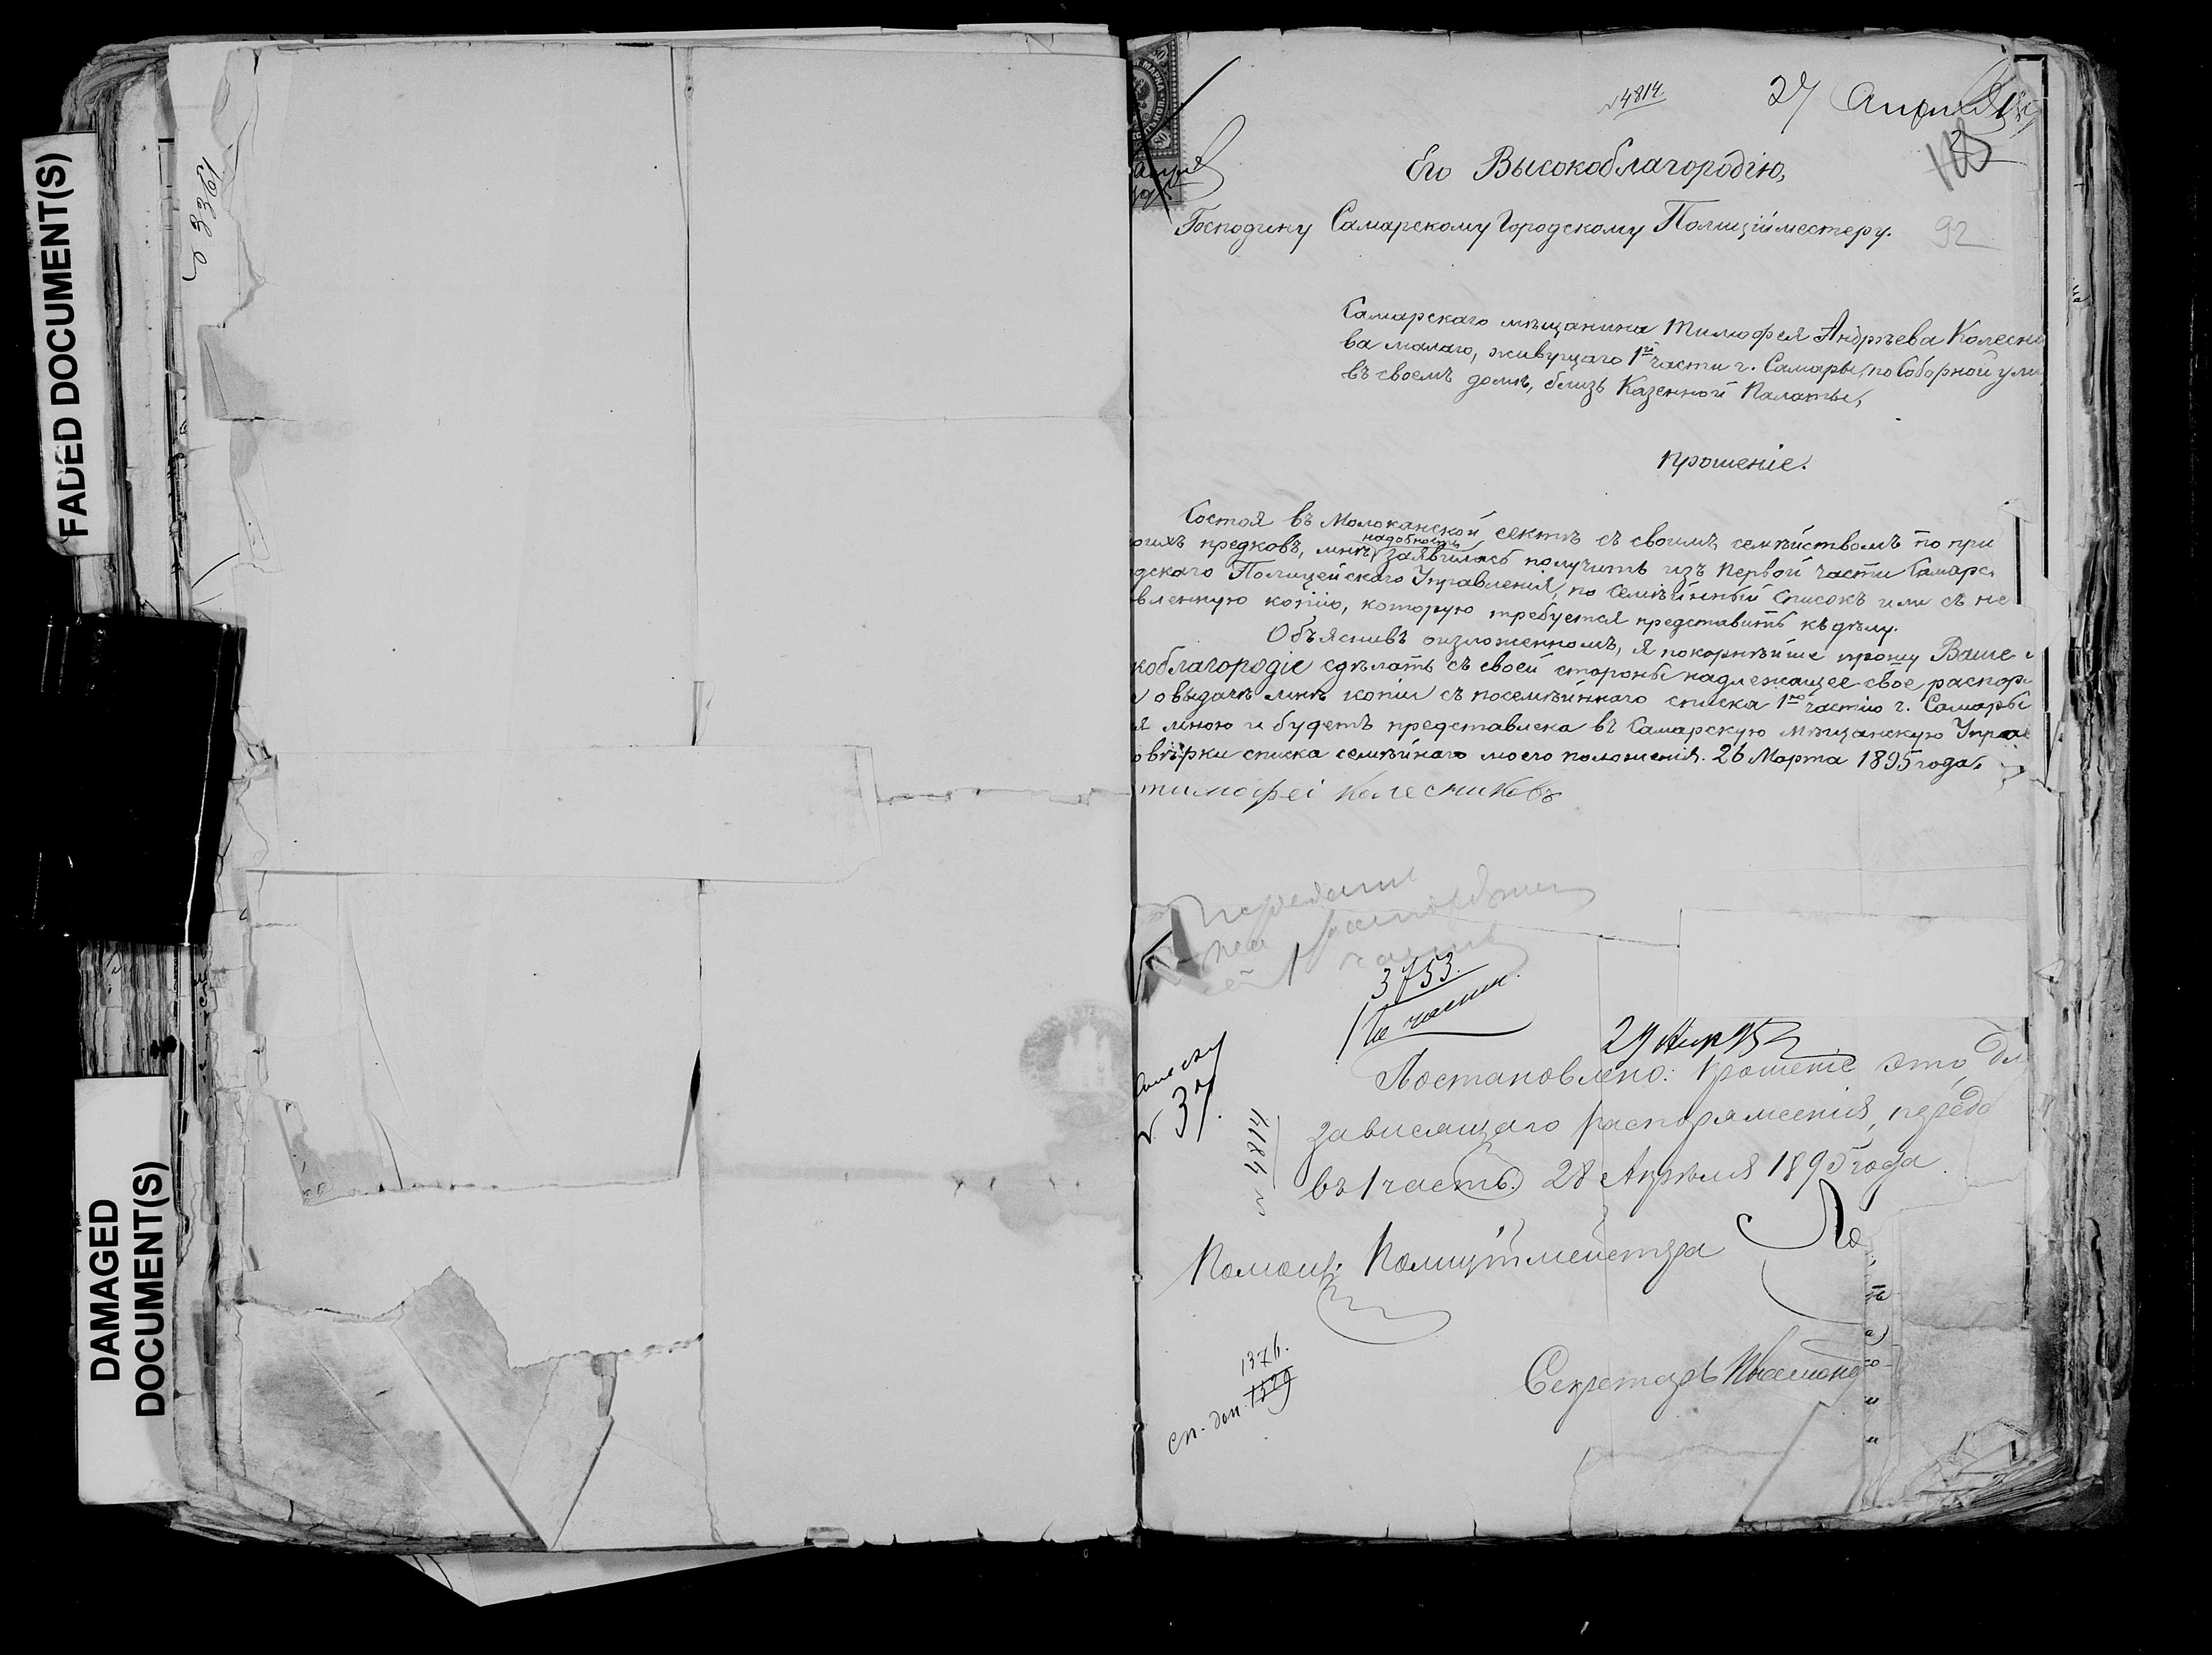 FADED DOCUMENT(S)
DAMAGED
DOCUMENT(S)
МАРКА
80
№ 4814.
27
92
Его Высокоблагородію,
Господину Самарскому Городскому Полиційместеру.
Самарскаго мѣщанина Тимофея Андрѣева Колесни
ва малаго, живущаго 1й части г. Самары, по Соборной ули
въ своемъ домѣ, близь Казенной Палаты,
прошеніе.
Состоя въ Молоканской сектѣ съ своимъ семѣйствомъ по при
оихъ предковъ, мнѣ надобность заявилась получить изъ первой части Самарс
дскаго Полицейскаго Управленія, по семѣйный списокъ или съ не
вленную копію, которую требуется представить къ дѣлу.
Объяснивъ оизложенномъ, я покорнѣйше прошу Ваше
коблагородіе сдѣлать съ своей стороны надлежащее свое распор
о выдачѣ мнѣ копіи съ посемѣйннаго списка 1ю частію г. Самары
я мною и будетъ представлена въ Самарскую мѣщанскую Управ
овѣрки списка семѣйнаго моего положенія. 26 Марта 1895 года,
тимофеі колесниковъ
3753.
1й части.
№ 37.
29 Апр 95
№ 4814
Постановлено: прошеніе это, дл
зависящаго распоряженія, переда
въ 1 часть. 28 Апрѣля 1895 года.
Помощ. Полицiймейстера
1376.
сп. доп. 1329
Секретарь